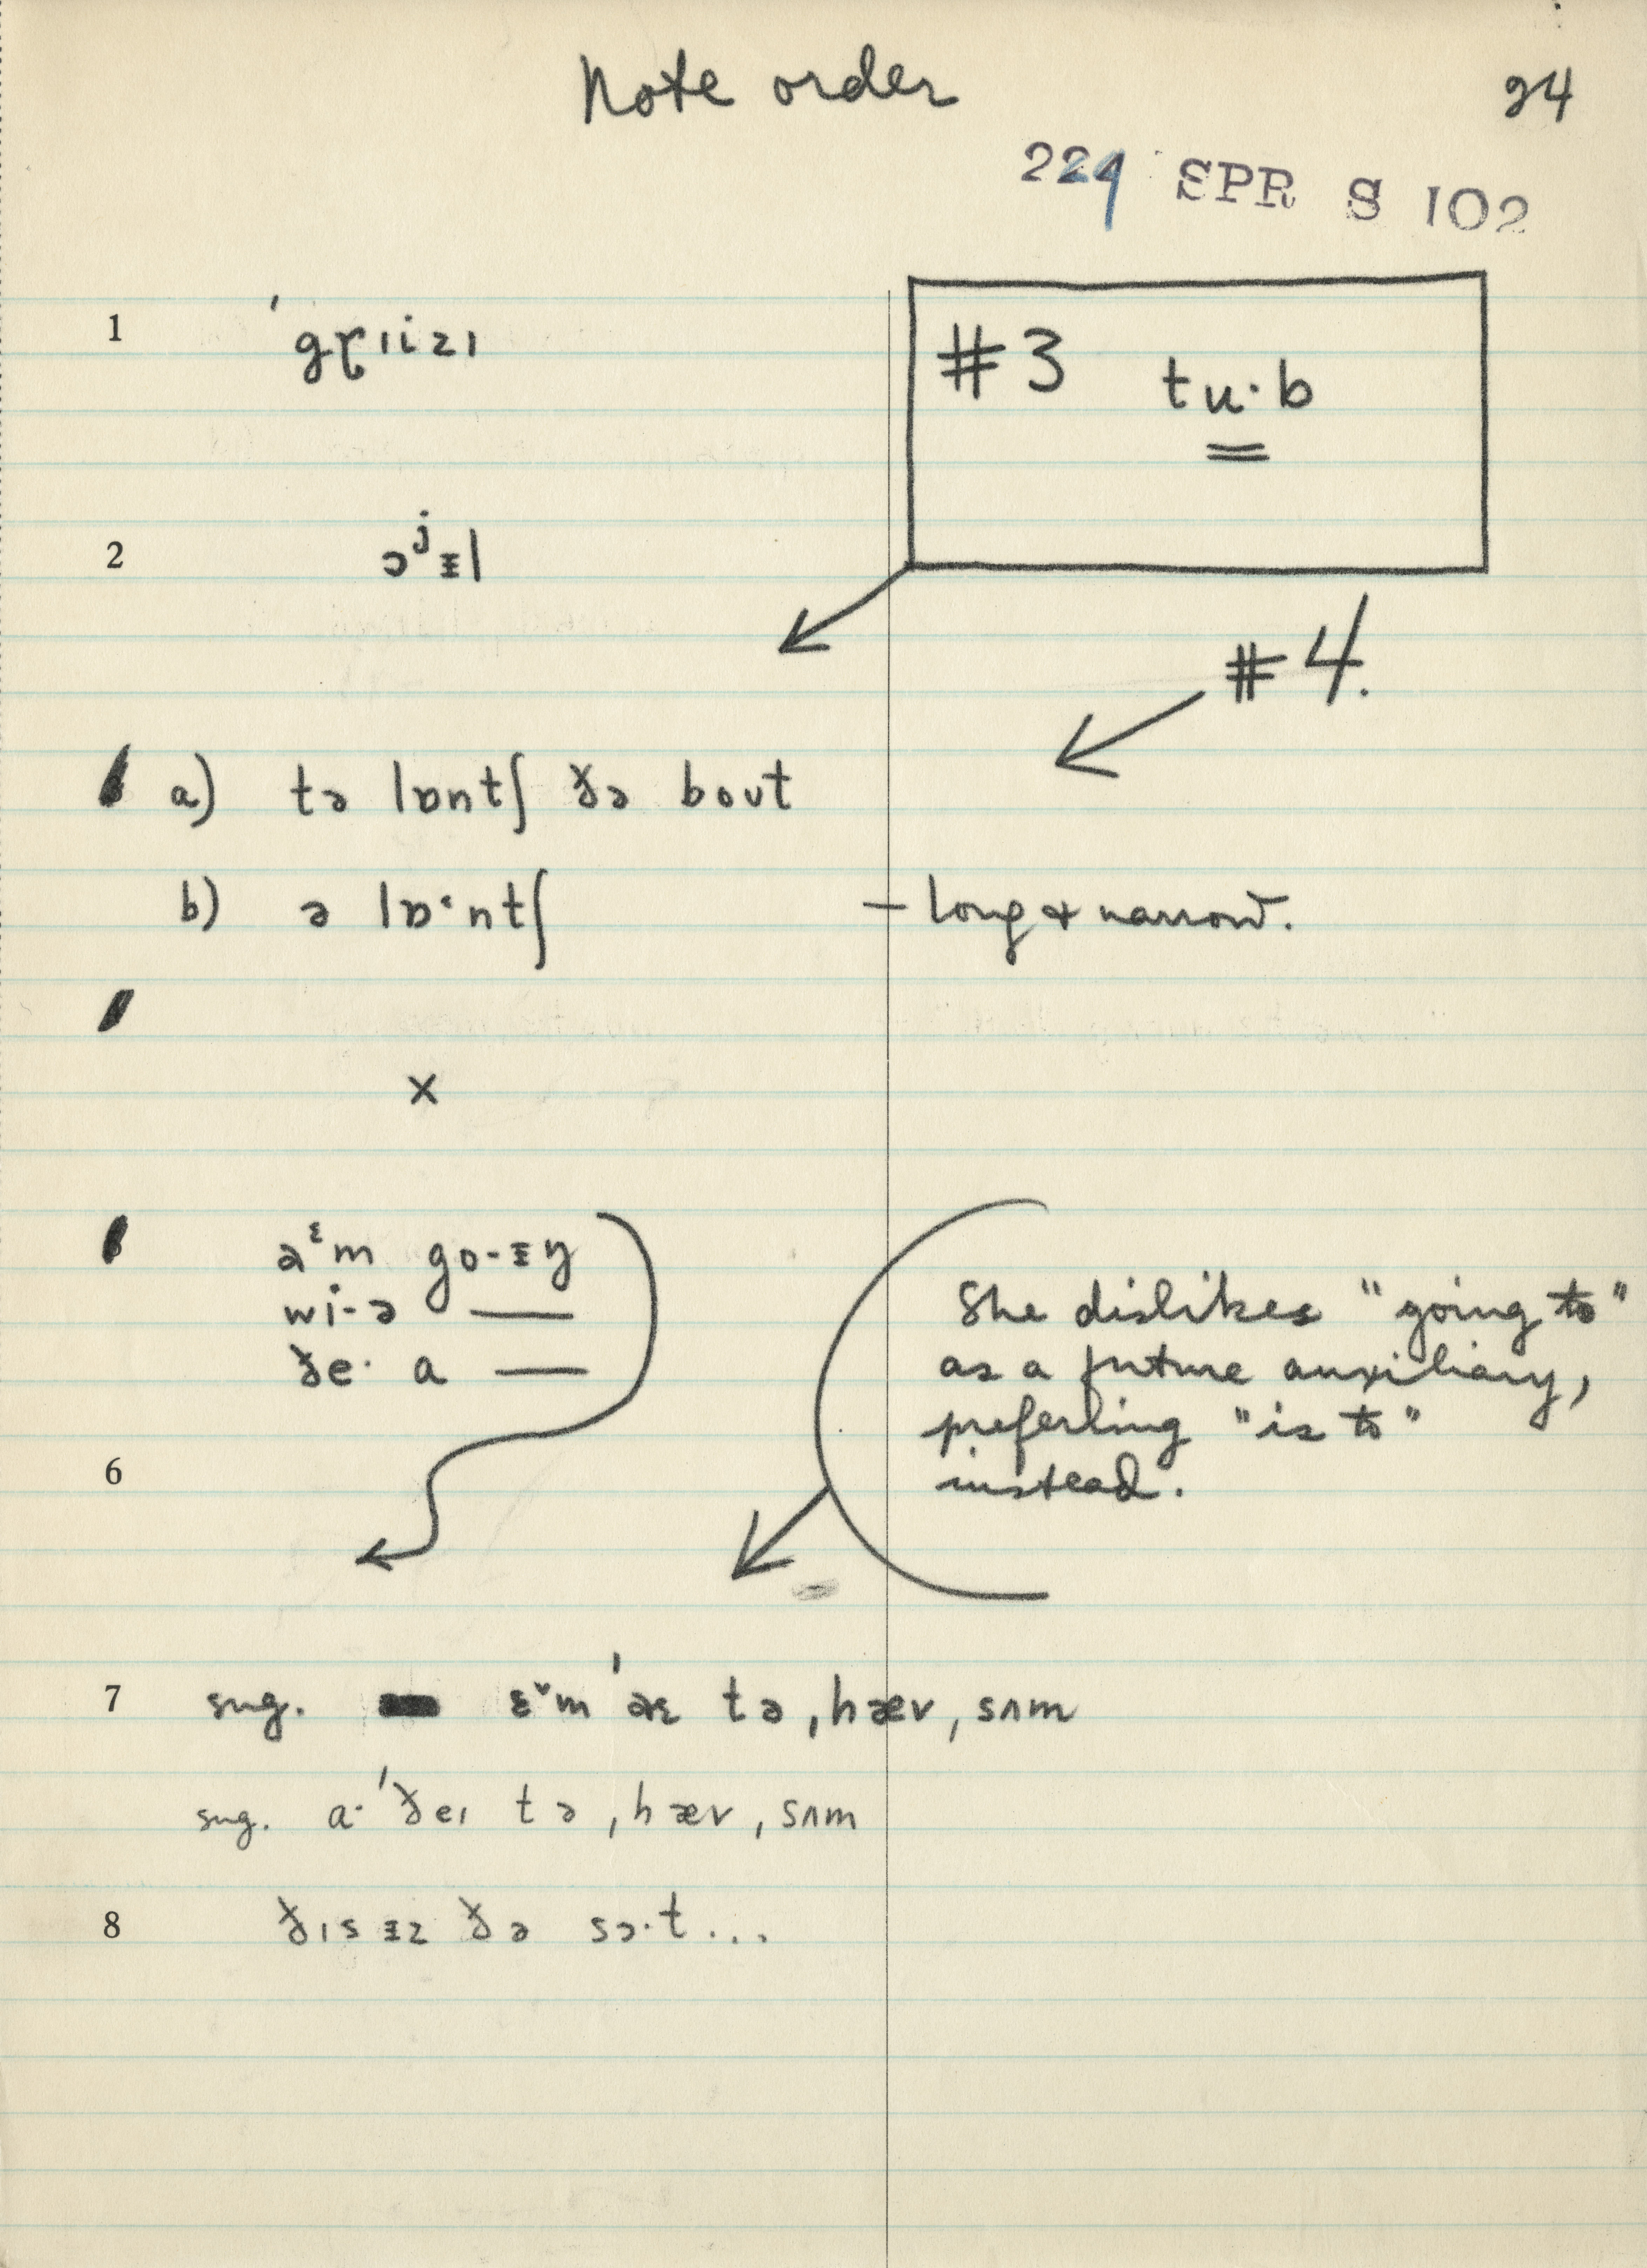 Note order 24
224 SPR S 102
1 ˈgɽıizı
#3 tu·b
2 ɔʲᵻl
#4.
a) tə lɒntʃ ðə bout
b) ə lɒ·ntʃ – long & narrow.
x
go-ᵻŋ
wi-ə —
ðe· a —
She dislikes "going to"
as a future auxiliary,
preferring "is to"
instead.
6
7 sug. tə ˌhævˌsʌm
sug. a·ˈðeı tə ˌhævˌsʌm
8 ðıs ᵻz ðə sɔ·t...